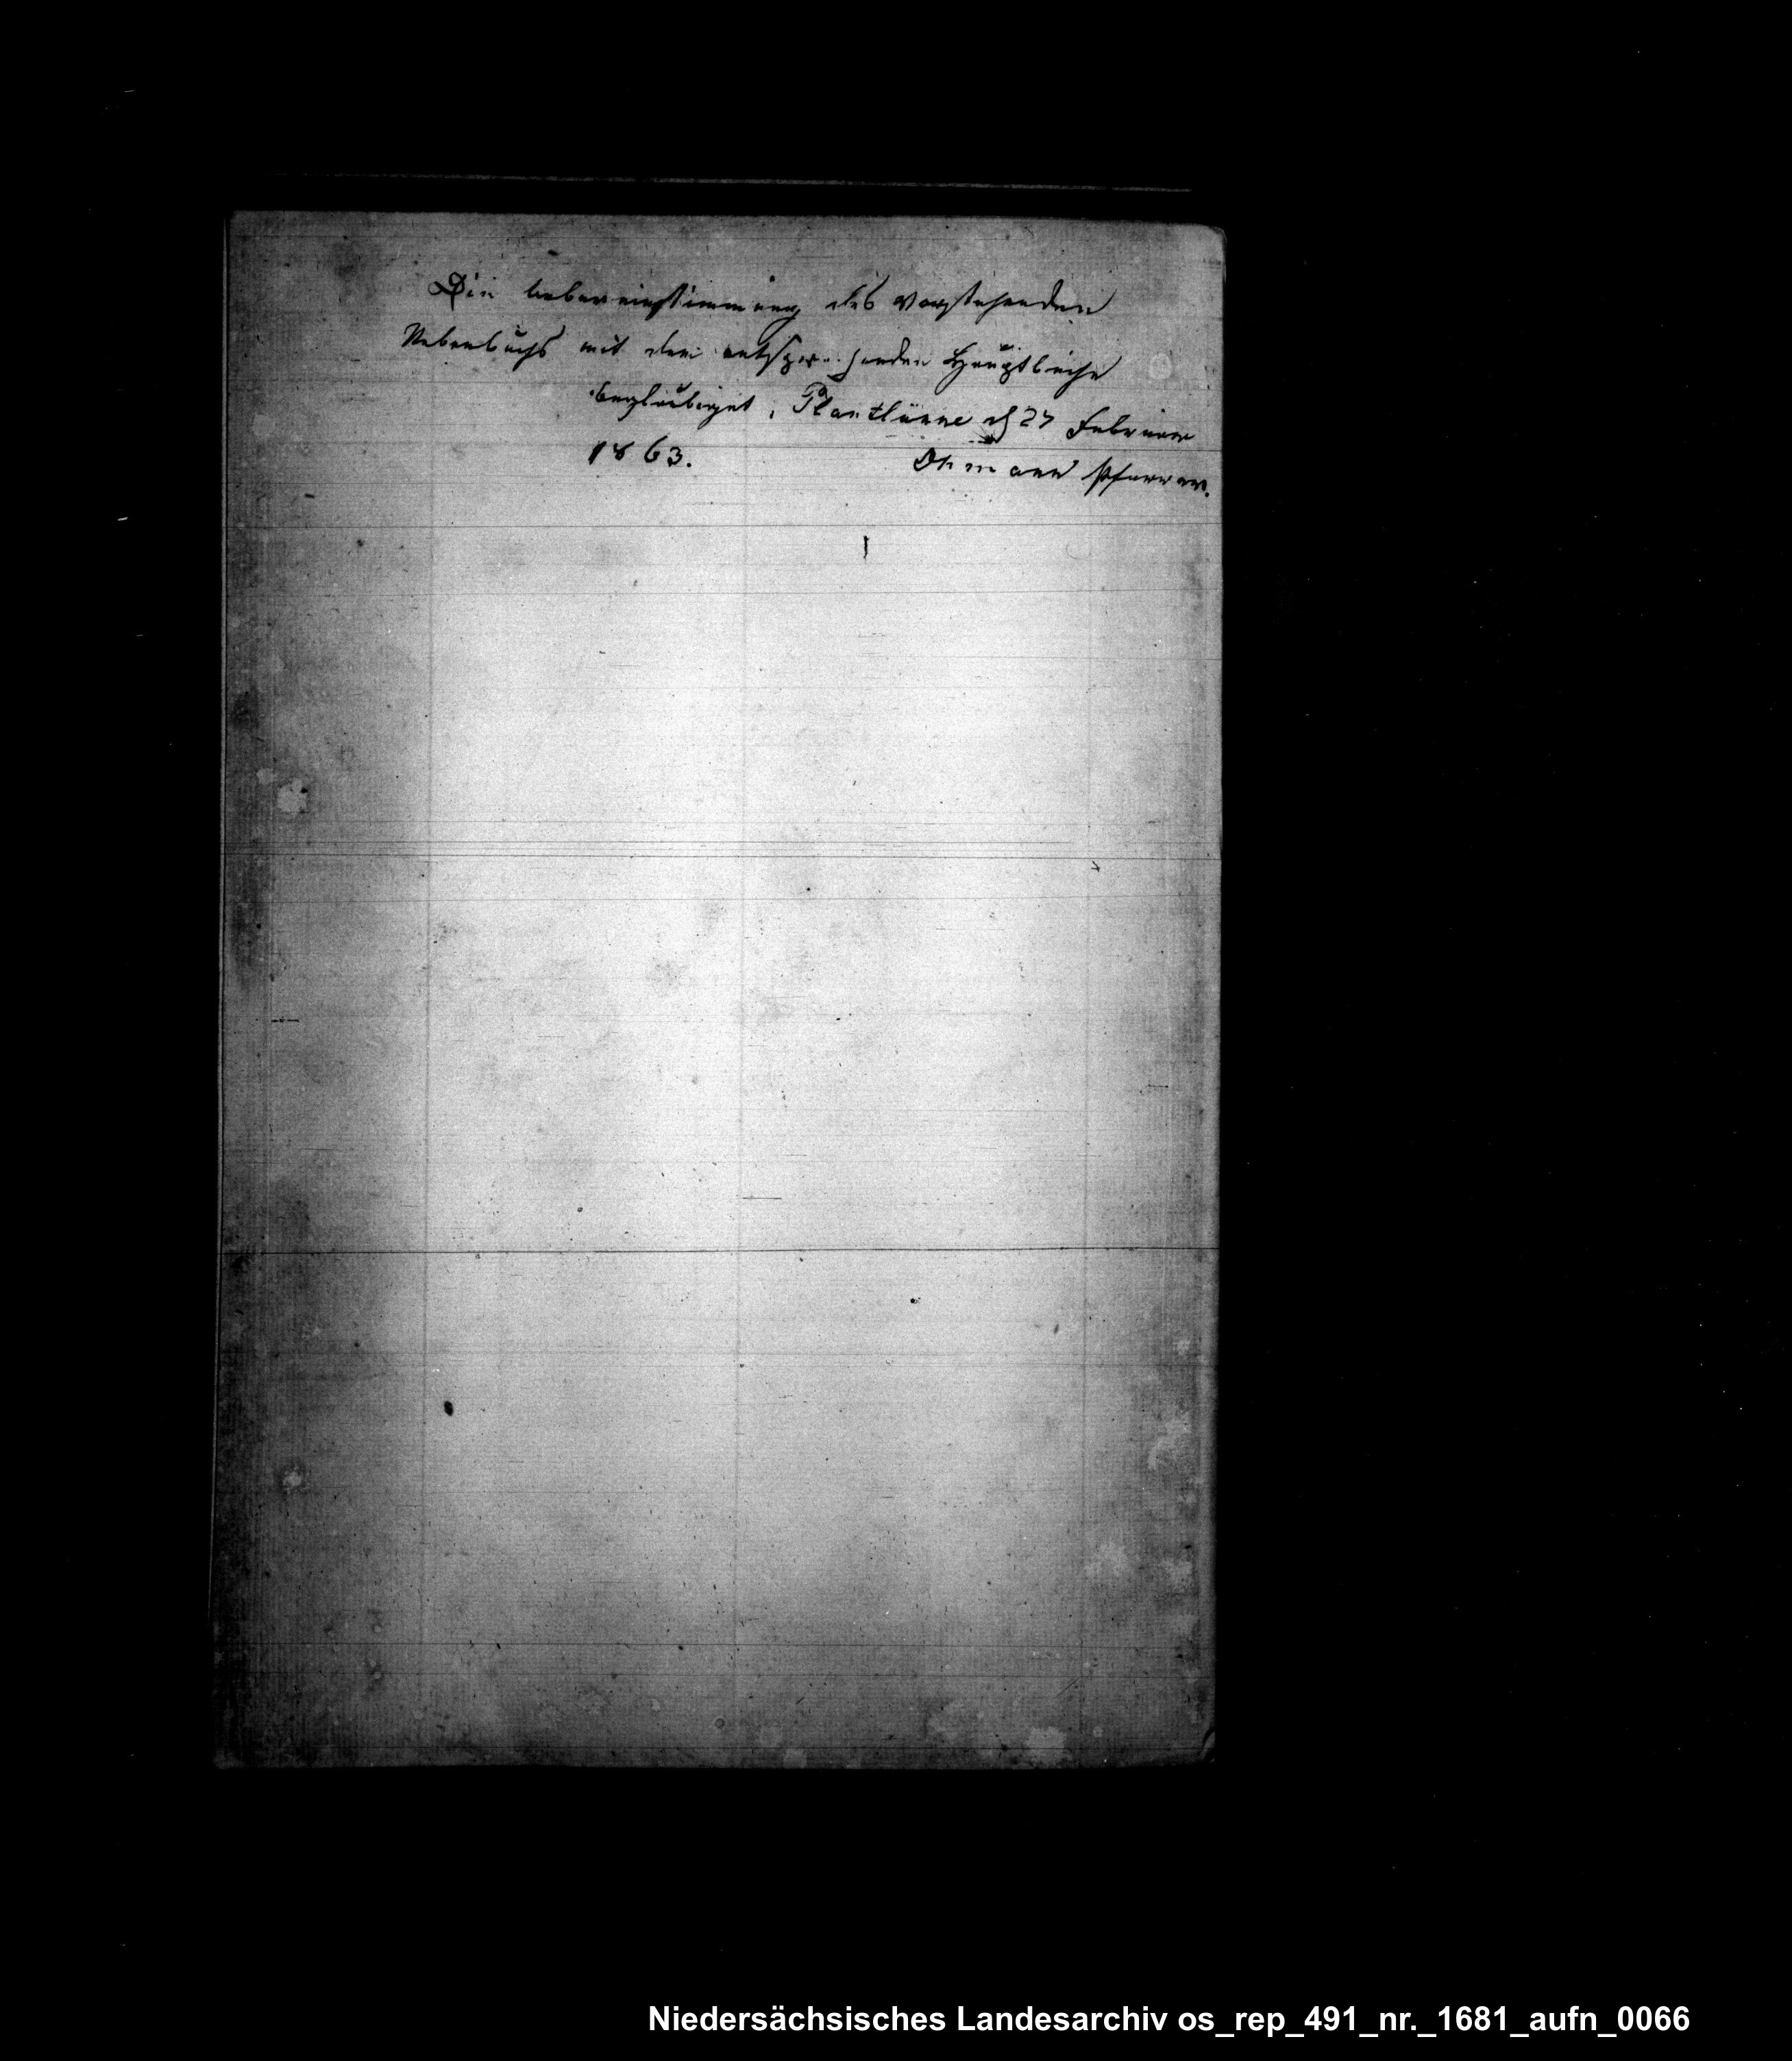 Die Uebereinstimmung des vorstehenden
Nebenbuchs mit dem entsprechenden Hauptbuche
beglaubiget, Plantlünne d 27 Februar
1863. Ohmann Pfarrer.
Niedersächsisches Landesarchiv os_rep_491_nr._1681_aufn_0066